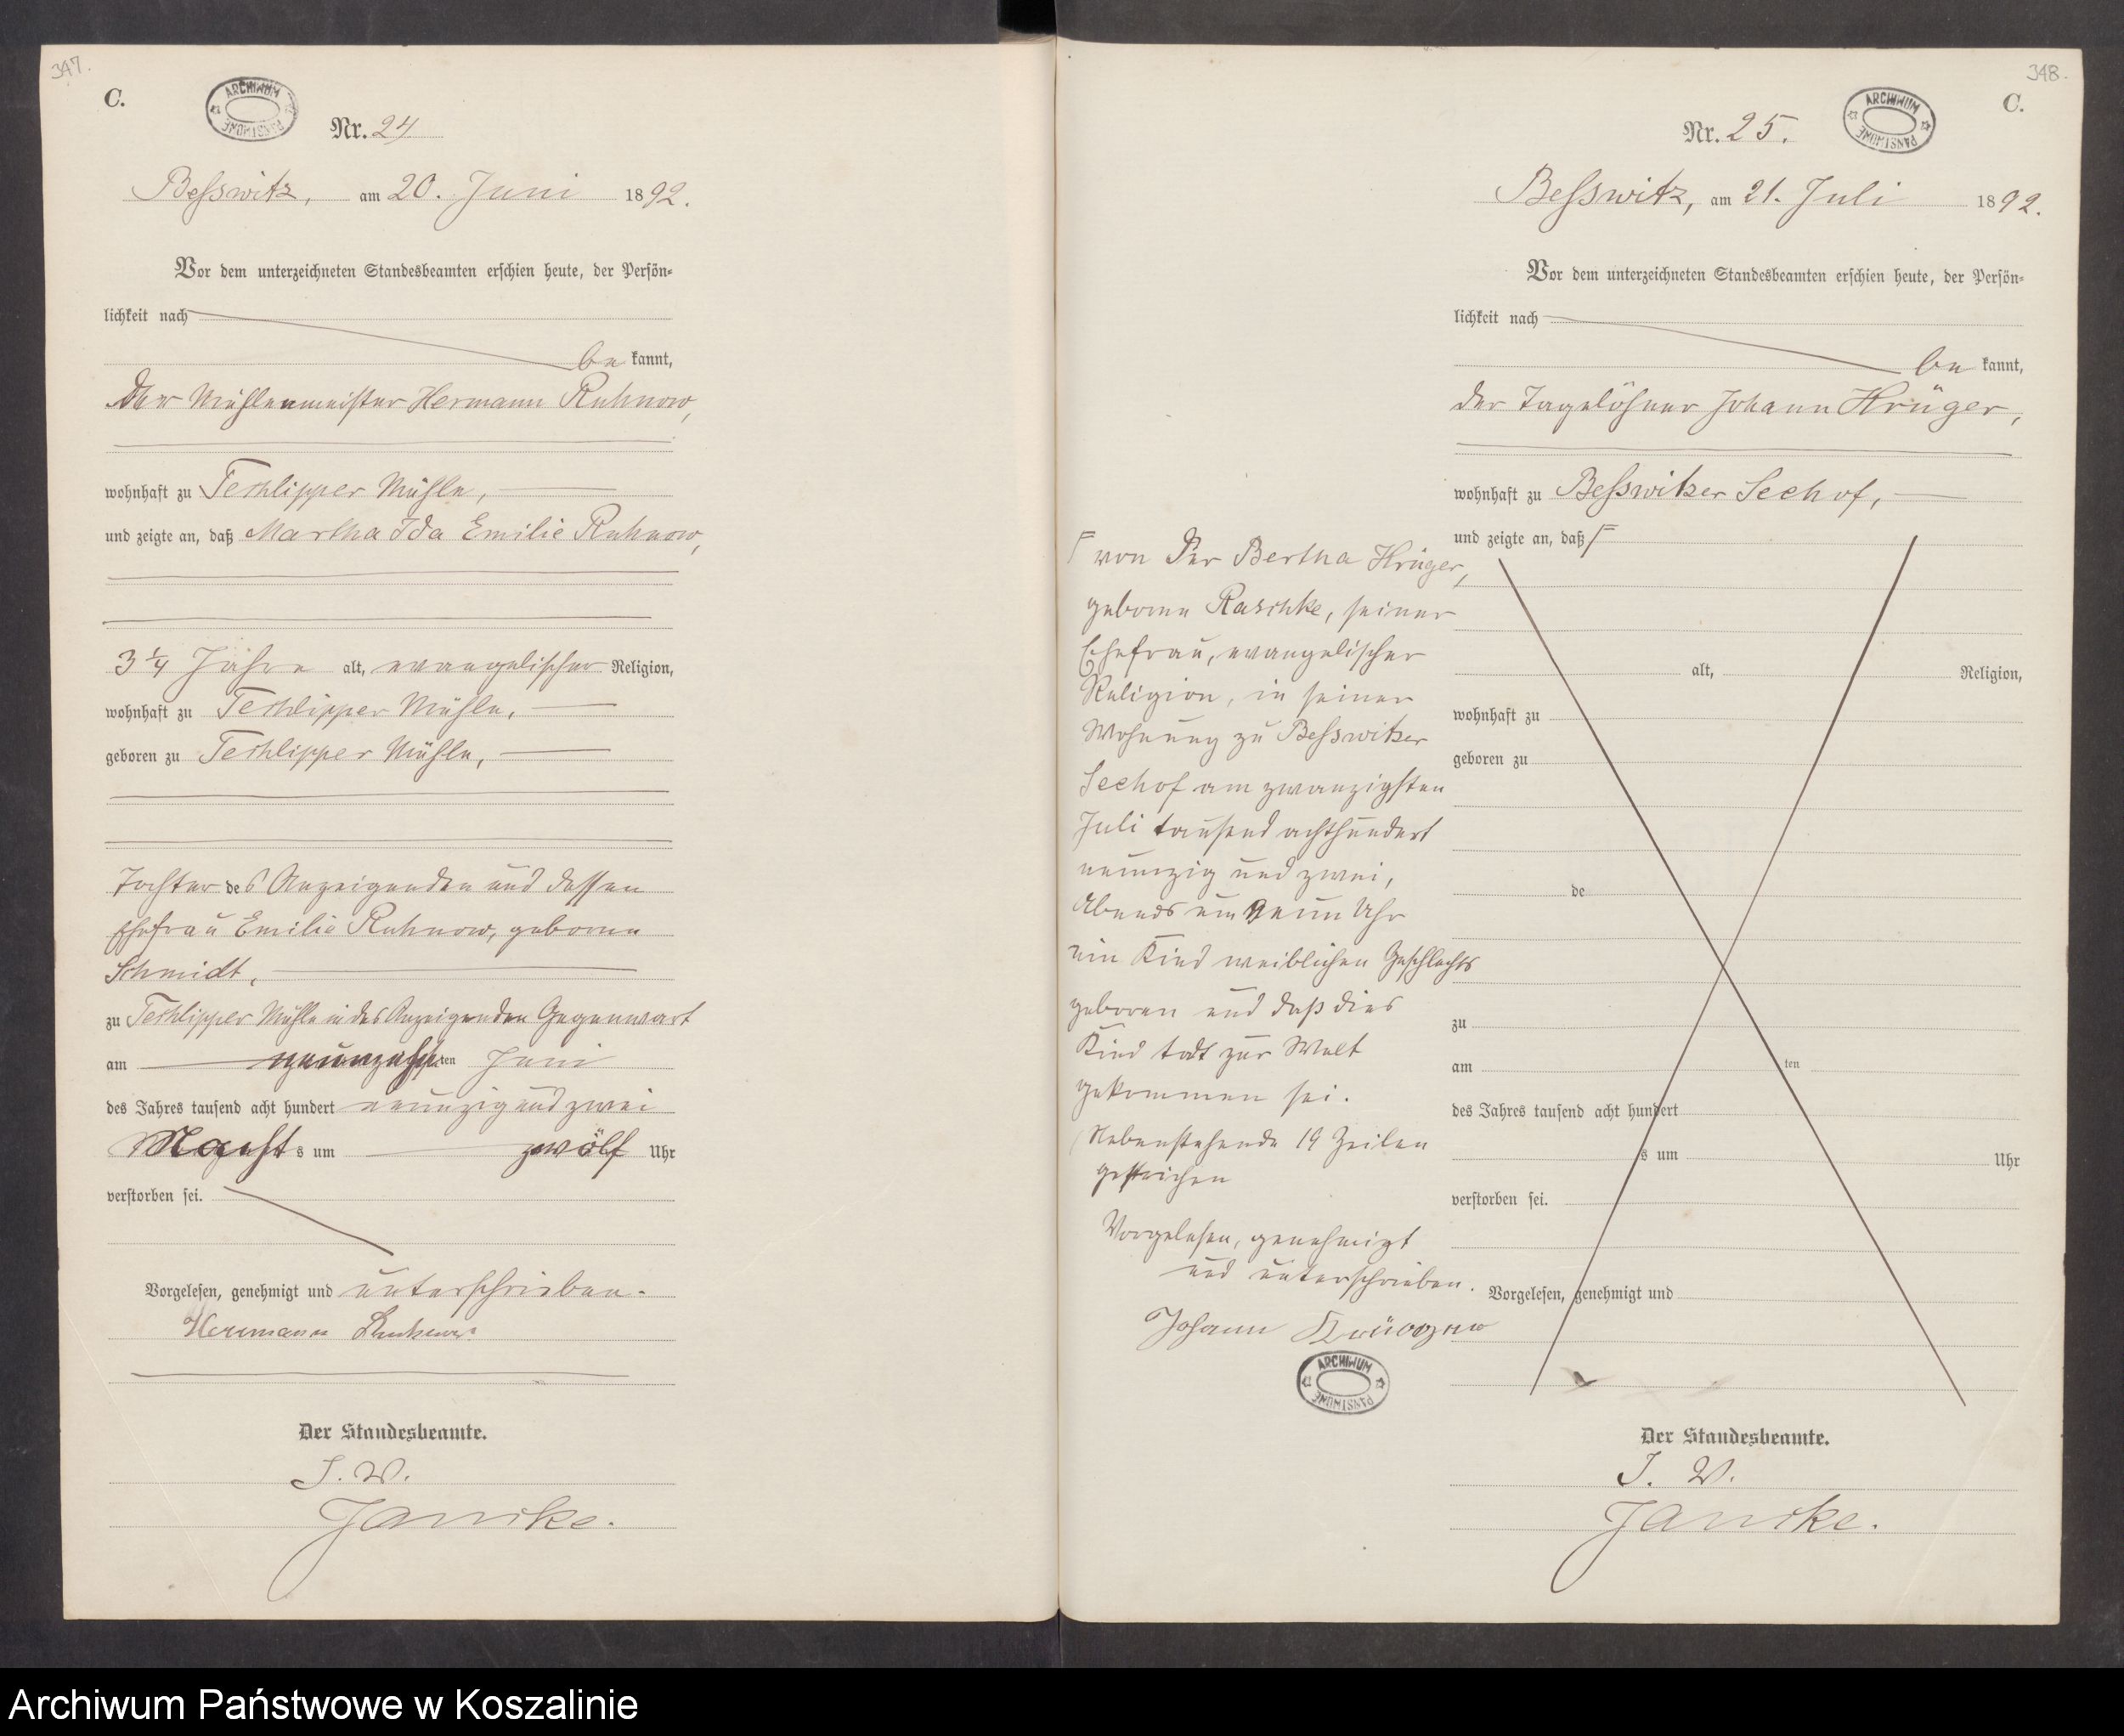 347.
C.
ARCHIWUM PAŃSTWOWE
Nr. 24
Beßwitz, am 20. Juni 1892.
Vor dem unterzeichneten Standesbeamten erschien heute, der Persön-
lichkeit nach
be kannt,
der Mühlenmeister Hermann Ruhnow,
wohnhaft zu Techlipper Mühle,
und zeigte an, daß Martha Ida Emilie Ruhnow,
3 1/4 Jahre alt, evangelischer Religion,
wohnhaft zu Techlipper Mühle,
geboren zu Techlipper Mühle,
Tochter des Anzeigenden und dessen
Ehefrau Emilie Ruhnow, geborene
Schmidt,
zu Techlipper Mühle in des Anzeigenden Gegenwart
am neunzehnten Juni
des Jahres tausend acht hundert neunzig und zwei
Nachts um zwölf Uhr
verstorben sei.
Vorgelesen, genehmigt und unterschrieben.
Hermann Ruhnow
Der Standesbeamte.
I. V.
Janike.
348.
C.
ARCHIWUM PAŃSTWOWE
Nr. 25.
Beßwitz, am 21. Juli 1892.
Vor dem unterzeichneten Standesbeamten erschien heute, der Persön-
lichkeit nach
be kannt,
der Tagelöhner Johann Krüger,
wohnhaft zu Beßwitzer Seehof,
und zeigte an, daß Γ
Γ von der Bertha Krüger,
geborene Raschke, seiner
Ehefrau, evangelischer
Religion, in seiner
Wohnung zu Beßwitzer
Seehof am zwanzigsten
Juli tausend achthundert
neunzig und zwei,
Abends um neun Uhr
ein Kind weiblichen Geschlechts
geboren und daß dies
Kind todt zur Welt
gekommen sei.
Nebenstehende 19 Zeilen
gestrichen
Vorgelesen, genehmigt
und unterschrieben.
Johann Krüger
ARCHIWUM PAŃSTWOWE
alt, Religion,
wohnhaft zu
geboren zu
de
zu
am ten
des Jahres tausend acht hundert
s um Uhr
verstorben sei.
Vorgelesen, genehmigt und
Der Standesbeamte.
I. V.
Janike.
Archiwum Państwowe w Koszalinie